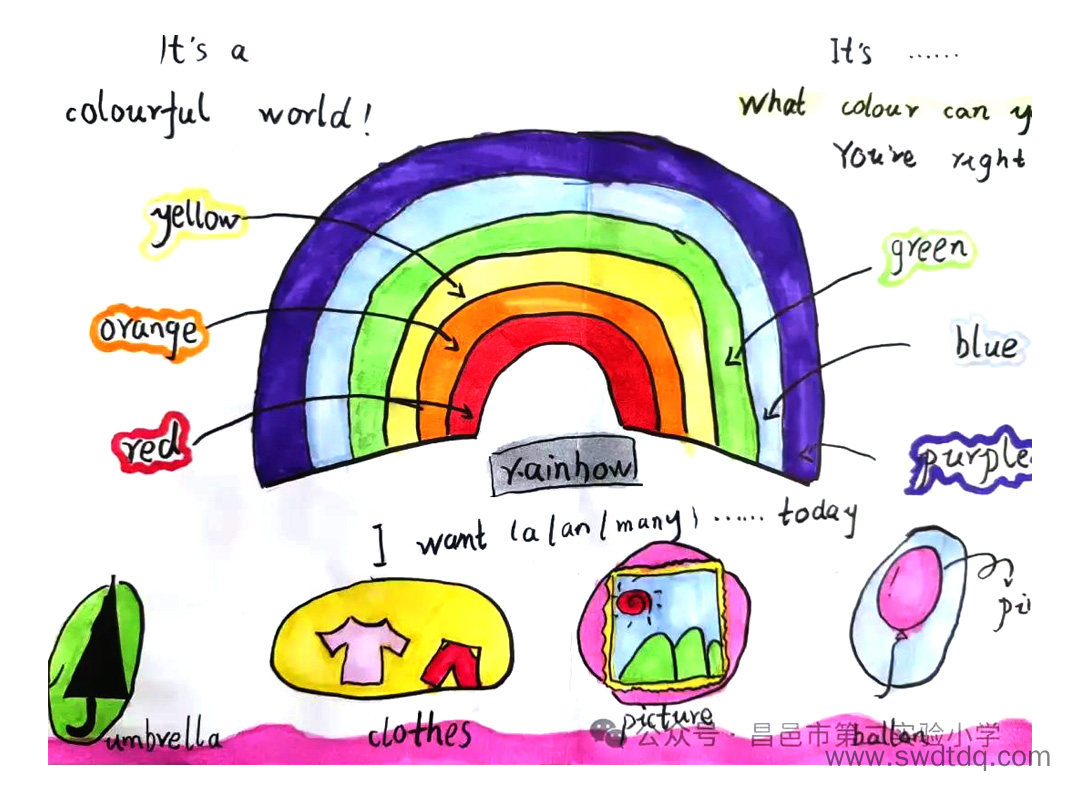 It's a
colourful world!
It's ......
What colour can y
You're right
yellow
green
orange
blue
red
purple
rainhow
I want (a/an/many) ...... today
pi
umbrella
clothes
picture
ballon
公众号 · 昌邑市第 实验小学
www.swdtdq.com